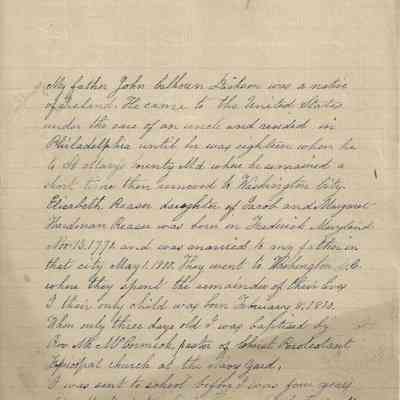 My father John Calhoun Gibson was a native
of Ireland. He came to the United States
under the care of an uncle and resided in
Philadelphia until he was eighteen when he
to St Marys county Md where he remained a
short time then removed to Washington City.
Elizabeth Reaser daughter of Jacob and Margaret
Hardman Reaser was born in Frederick Maryland
Nov 13. 1771 and was married to my father in
that city May 1. 1800. They went to Washington D.C.
where they spent the remainder of their lives
I their only child was born February 4, 1810.
When only three days old I was baptised by
Rev Mr McCormick, pastor of Christ Protestant
Episcopal church at the Navy Yard.
I was sent to school before I was four years